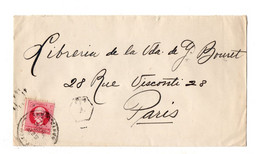 Libreria de la Vda de Ch. Bouret
28 Rue Visconti 28
Paris